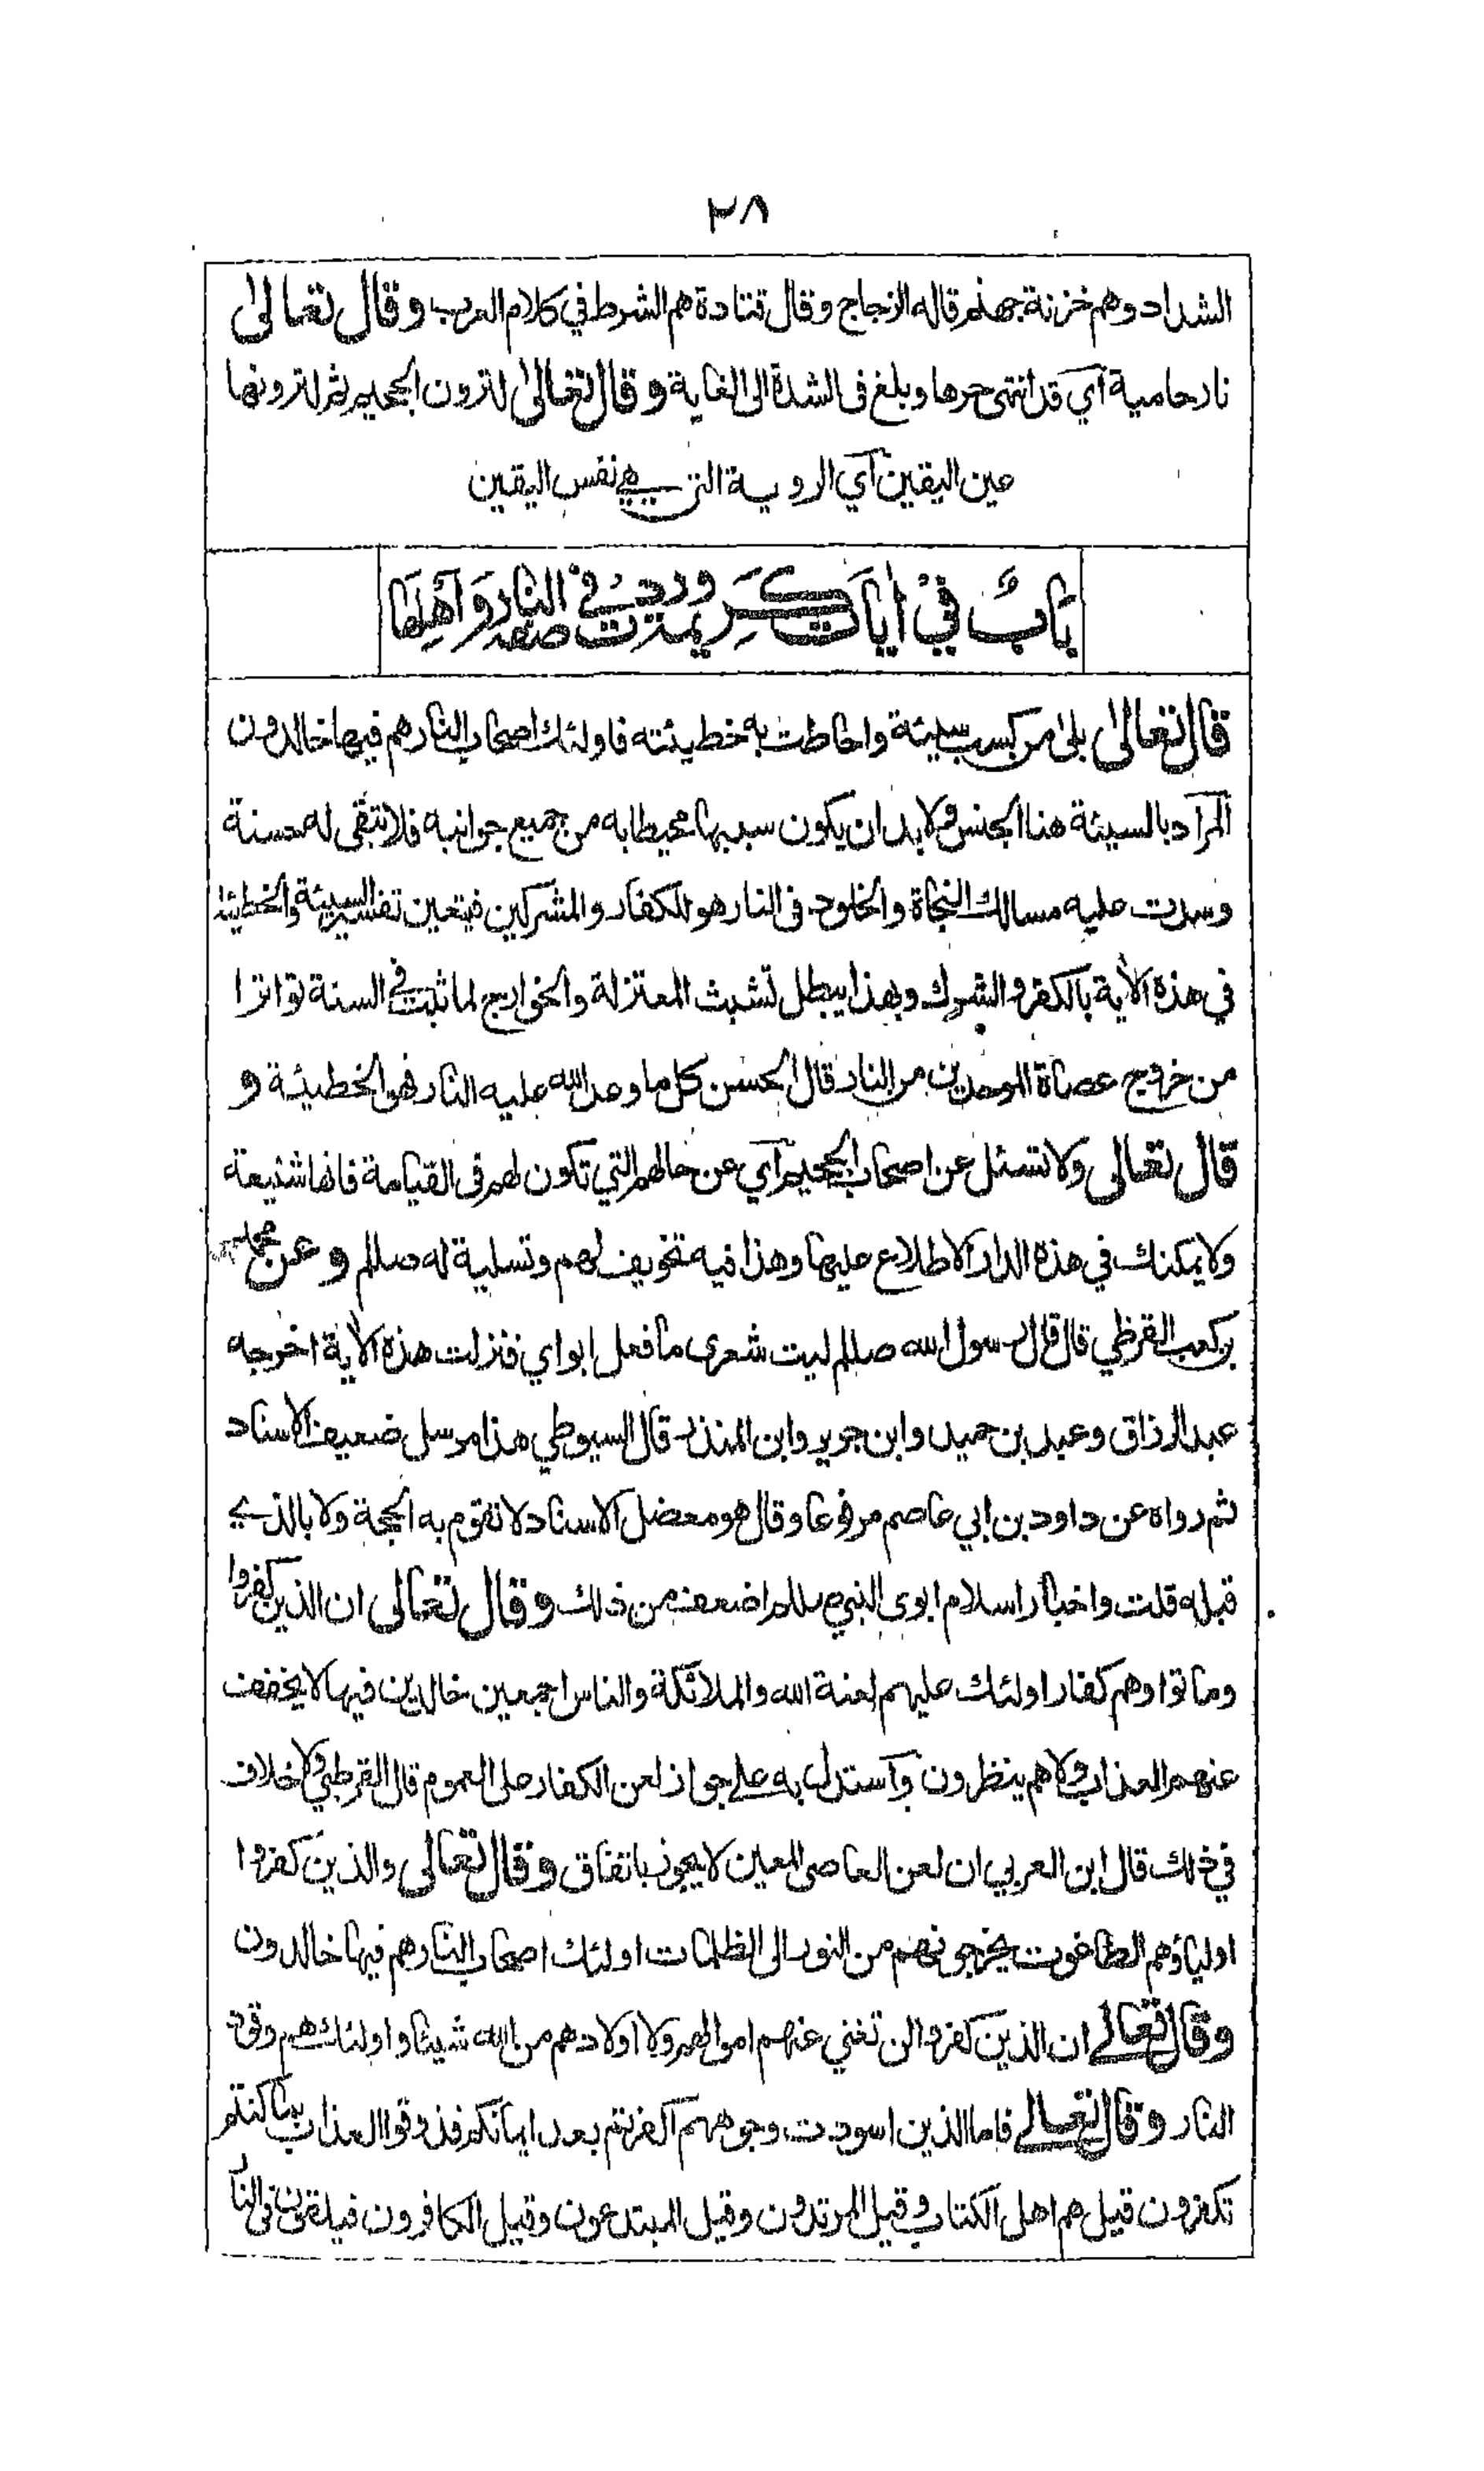 ٢٨
الشداد وهم خزنة جهنم قاله الزجاج وقال قتادة هم الشرط في كلام العرب وقال تعالى
نار حامية آي قد انتهى حرها وبلغ فى الشدة الى الغاية وقال تعالى لترون الجحيم ثم لترونها
عين اليقين آي الروية التي هي نفس اليقين
باب في ايات كريمة وردت في صفة النار وأهلها
قال تعالى بلى من كسب سيئة واحاطت به خطيئته فاولئك اصحاب النار هم فيها خالدون
المراد بالسيئة هنا الجنس ولا بد ان يكون سببها محيطا به من جميع جوانبه فلا تبقى له حسنة
وسدت عليه مسالك النجاة والخلود فى النار هو للكفار والمشركين فيتعين تفسير السيئة والخطيئة
في هذه الآية بالكفر والشرك وبهذا يبطل تشبث المعتزلة والخوارج لما ثبت في السنة تواترا
من خروج عصاة الموحدين من النار قال الحسن كل ما وعد الله عليه النار فهو الخطيئة و
قال تعالى ولا تسئل عن اصحاب الجحيم آي عن حالهم التي تكون لهم فى القيامة فانها شنيعة
ولا يمكنك في هذه الدار الاطلاع عليها وهذا فيه تخويف لهم وتسلية له صللم وعن محمد
بن كعب القرظي قال قال رسول الله صللم ليت شعرى ما فعل ابواي فنزلت هذه الآية اخرجه
عبد الرزاق وعبد بن حميد وابن جرير وابن المنذر قال السيوطي هذا مرسل ضعيف الاسناد
ثم رواه عن داود بن ابي عاصم مرفوعا وقال هو معضل الاسناد لا تقوم به الحجة ولا بالذي
قبله قلت واخبار اسلام ابوى النبي صللم اضعف من ذلك وقال تعالى ان الذين كفروا
وماتوا وهم كفار اولئك عليهم لعنة الله والملائكة والناس اجمعين خالدين فيها لا يخفف
عنهم العذاب ولا هم ينظرون وآستدل به على جواز لعن الكفار على العموم قال القرطبي ولا خلاف
في ذلك قال ابن العربي ان لعن العاصى المعين لا يجوز باتفاق وقال تعالى والذين كفروا
اولياؤهم الطاغوت يخرجونهم من النور الى الظلمات اولئك اصحاب النار هم فيها خالدون
وقال تعالى ان الذين كفروا لن تغني عنهم اموالهم ولا اولادهم من الله شيئا واولئك هم وقود
النار وقال تعالى فاما الذين اسودت وجوههم اكفرتم بعد ايمانكم فذوقوا العذاب بما كنتم
تكفرون قيل هم اهل الكتاب وقيل المرتدون وقيل المبتدعون وقيل الكافرون فيلقون فى النا